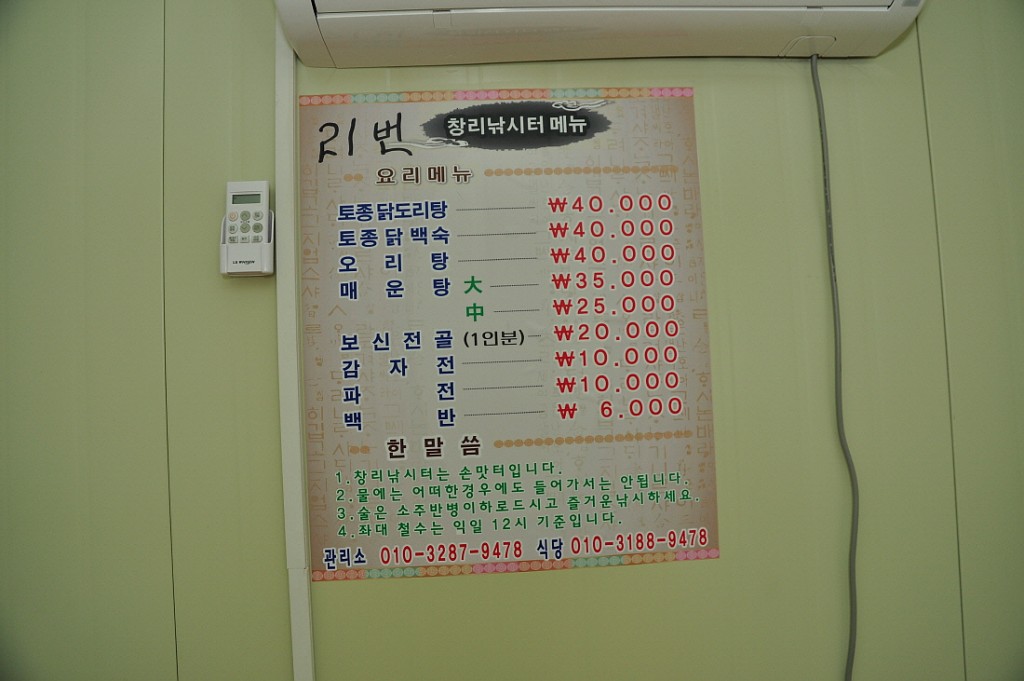 21번 창리낚시터 메뉴
요리메뉴
토종닭도리탕 ₩40.000
토종닭백숙 ₩40.000
오리탕 ₩40.000
매운탕 大 ₩35.000
中 ₩25.000
보신전골 (1인분) ₩20.000
감자전 ₩10.000
파전 ₩10.000
백반 ₩ 6.000
한말씀
1.창리낚시터는 손맛터입니다.
2.물에는 어떠한경우에도 들어가서는 안됩니다.
3.술은 소주반병이하로드시고 즐거운낚시하세요.
4.좌대 철수는 익일 12시 기준입니다.
관리소 010-3287-9478 식당 010-3188-9478